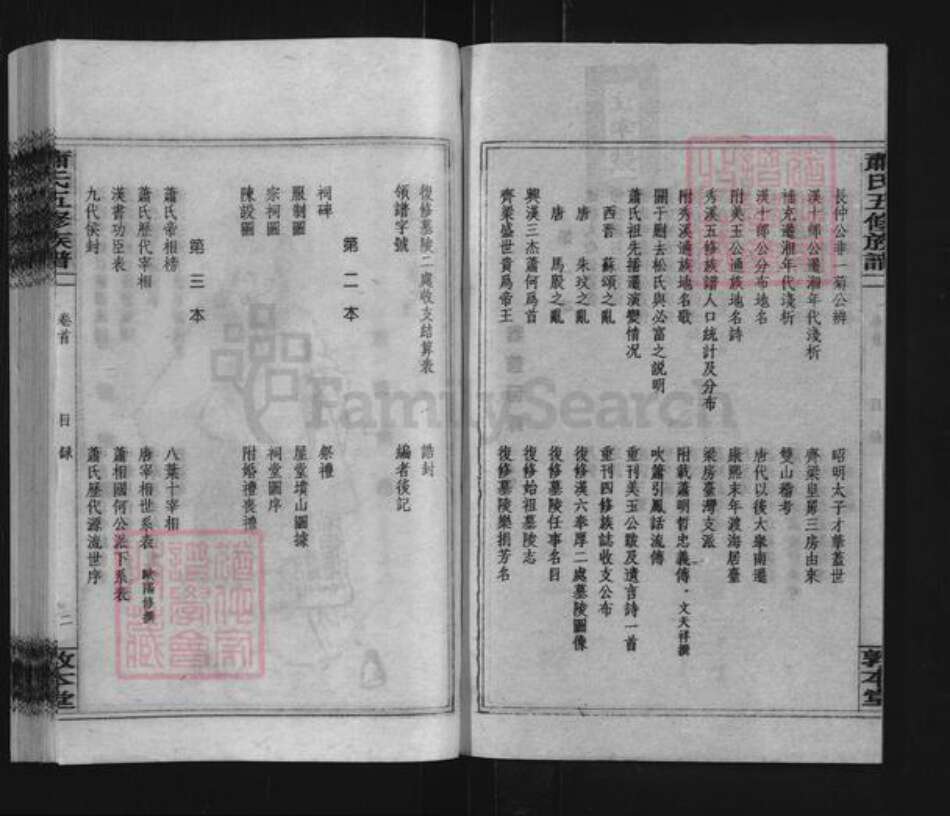 蕭氏五修族譜
敦本堂
長仲公非一菊公辨
漢十郎公遷湘年代淺析
補充遷湘年代淺析
漢十郎公分布地名
附美玉公通族地名詩
秀溪五修族譜人口統計及分布
附秀溪通族地名歌
關于尉去松氏與必富之説明
蕭氏祖先播遷演變情况
西晋 蘇頌之亂
唐 朱玟之亂
唐 馬殷之亂
興漢三杰蕭何爲首
齊梁盛世貴爲帝王
昭明太子才華蓋世
齊梁皇舅三房由來
雙山稽考
唐代以後大舉南遷
康熙末年渡海居臺
梁房臺灣支派
附載蕭明哲忠義傳·文天祥撰
吹簫引鳳話流傳
重刊美玉公跋及遺言詩一首
重刊四修族誌收支公布
復修漢六奉厚二處墓陵圖像
復修墓陵任事名目
復修始祖墓陵志
復修墓陵樂捐芳名
復修墓陵二處收支結算表
領譜字號
誥封
編者後記
第二本
祠碑
服制圖
宗祠圖
陳設圖
祭禮
屋堂墳山圖據
祠堂圖序
附婚禮喪禮
第三本
蕭氏帝相榜
蕭氏歷代宰相
漢書功臣表
九代侯封
八葉十宰相
唐宰相世系表 歐陽修撰
蕭相國何公派下系表
蕭氏歷代源流世序
蕭氏五修族譜
卷首
目錄
二
敦本堂
FamilySearch